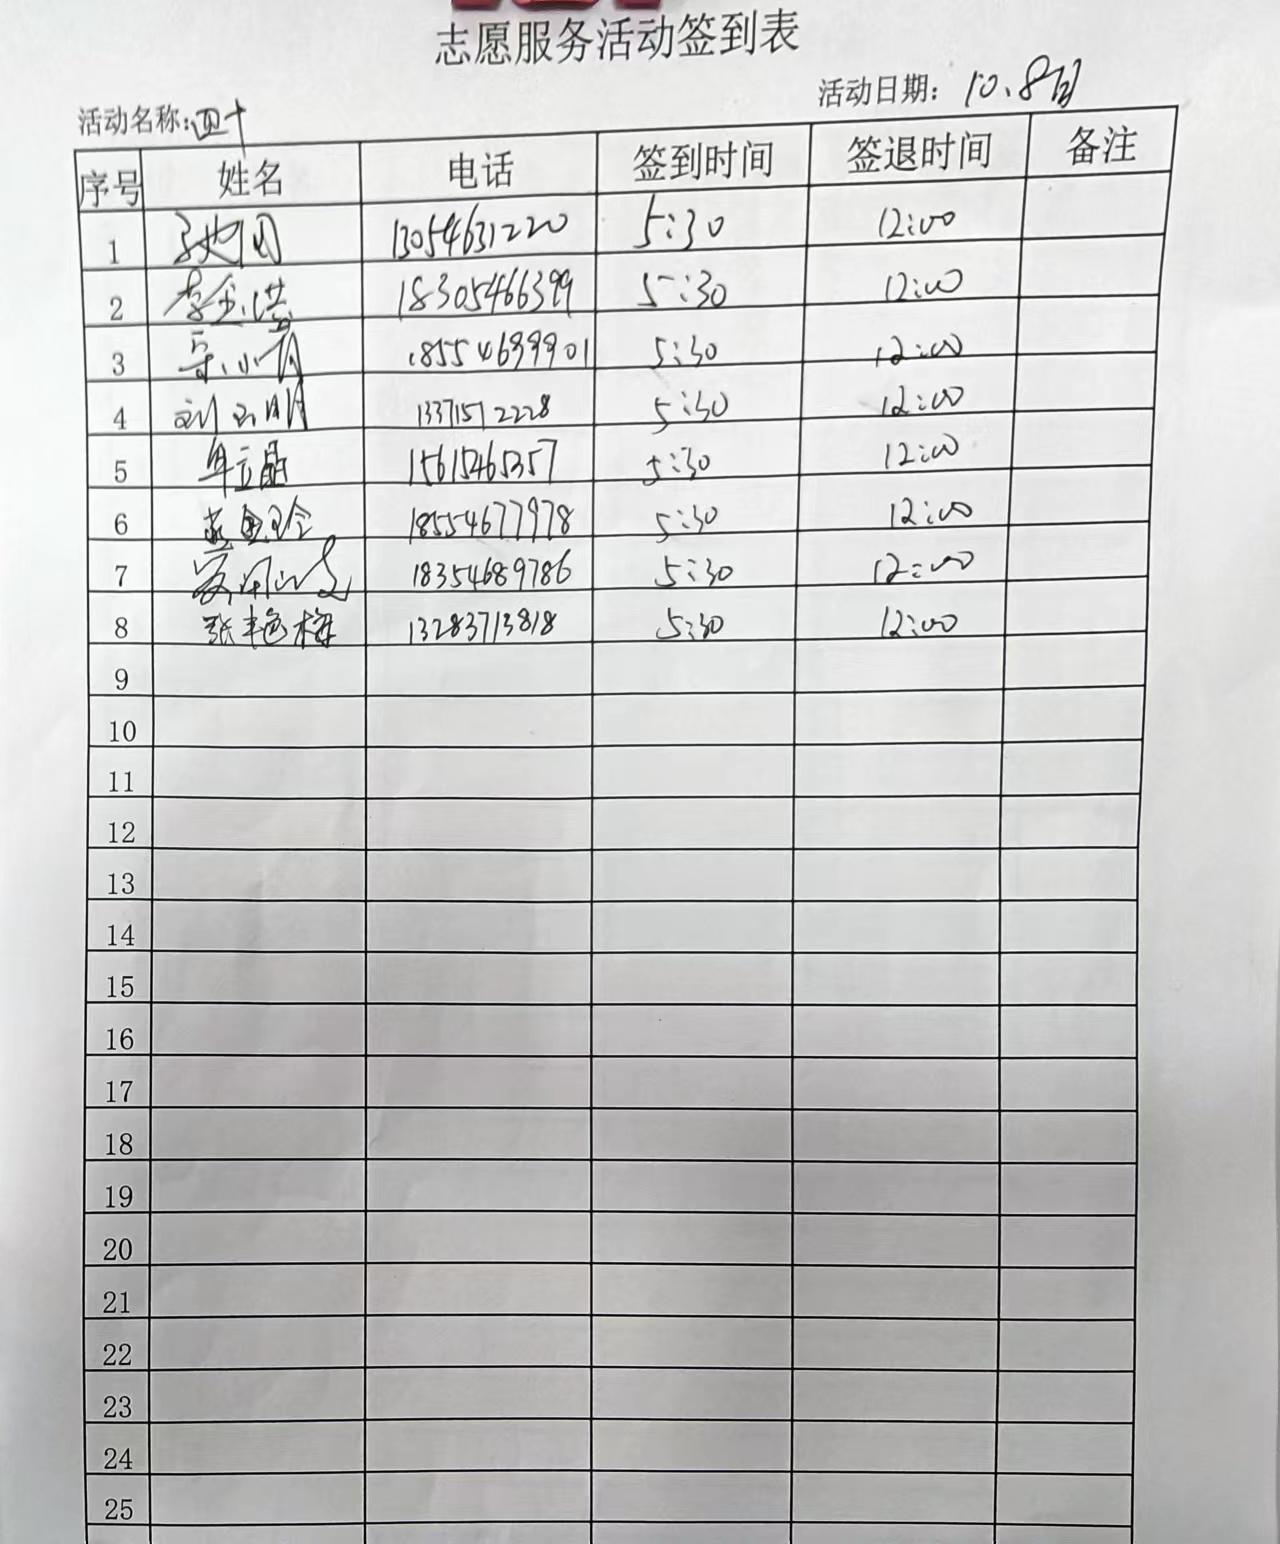 志愿服务活动签到表
活动名称:四十 活动日期: 10.8日
序号 姓名 电话 签到时间 签退时间 备注
1 13054631220 5:30 12:00
2 李金洪 18305466399 5:30 12:00
3 18554699901 5:30 12:00
4 刘玉明 13371572228 5:30 12:00
5 牟立晶 15615465357 5:30 12:00
6 18554677978 5:30 12:00
7 18354689786 5:30 12:00
8 张艳梅 13283713818 5:30 12:00
9
10
11
12
13
14
15
16
17
18
19
20
21
22
23
24
25